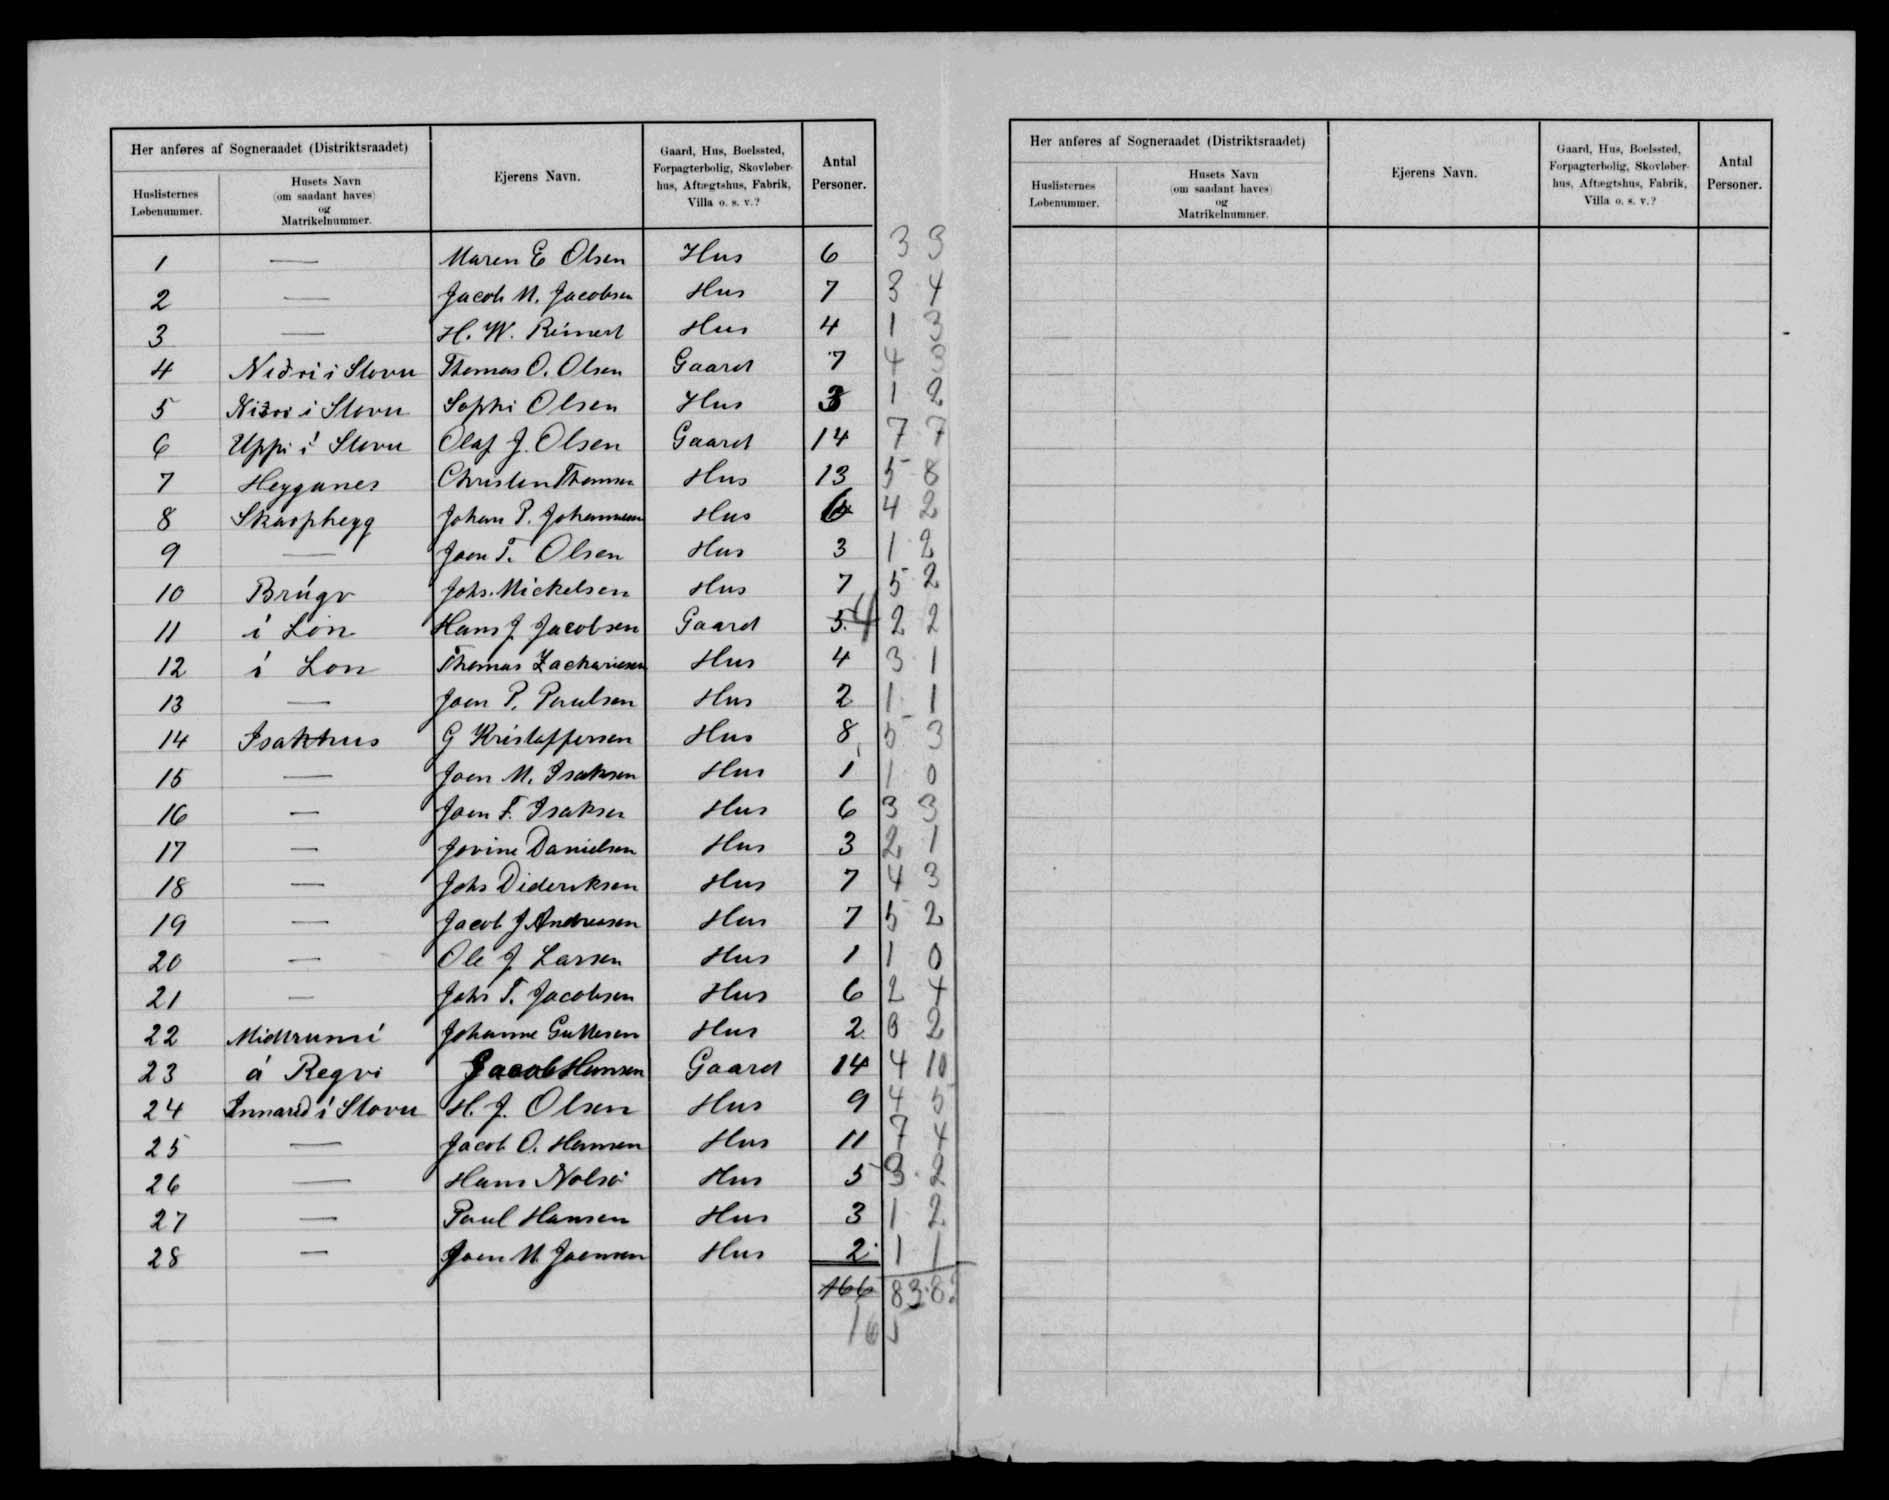 Her anføres af Sogneraadet (Distriktsraadet) Ejerens Navn. Gaard, Hus, Boelssted, Forpagterbolig, Skovløberhus, Aftægtshus, Fabrik, Villa o. s. v.? Antal Personer.
Huslisternes Løbenummer. Husets Navn (om saadant haves) og Matrikelnummer.
1 — Maren E Olsen Hus 6 3 3
2 — Jacob M. Jacobsen Hus 7 3 4
3 — H. W. Reinert Hus 4 1 3
4 Niðri i Stovu Thomas O. Olsen Gaard 7 4 3
5 Niðri i Stovu Sophi Olsen Hus 3 1 2
6 Uppi í Stovu Olaf J. Olsen Gaard 14 7 7
7 Heyganes Christen Thomsen Hus 13 5 8
8 Skarpheyg Johan P. Johannesen Hus 6 4 2
9 — Joen T. Olsen Hus 3 1 2
10 Brúgv Johs. Mickelsen Hus 7 5 2
11 í Lon Hans J Jacobsen Gaard 5 4 2 2
12 í Lon Thomas Zachariesen Hus 4 3 1
13 — Joen P. Poulsen Hus 2 1 1
14 Isakhus G Kristoffersen Hus 8 5 3
15 — Joen M. Isaksen Hus 1 1 0
16 — Joen F. Isaksen Hus 6 3 3
17 — Jovine Danielsen Hus 3 2 1
18 — Johs Dideriksen Hus 7 4 3
19 — Jacob J Andreasen Hus 7 5 2
20 — Ole J Larsen Hus 1 1 0
21 — Johs T. Jacobsen Hus 6 2 4
22 Johanne Guttesen Hus 2 0 2
23 á Regvi Jacob Hansen Gaard 14 4 10
24 Innard í Stovu H. J. Olsen Hus 9 4 5
25 — Jacob O. Hansen Hus 11 7 4
26 — Hans Nolsö Hus 5 3 2
27 — Poul Hansen Hus 3 1 2
28 — Joen M. Joensen Hus 2 1 1
166 83 82
165
Her anføres af Sogneraadet (Distriktsraadet) Ejerens Navn. Gaard, Hus, Boelssted, Forpagterbolig, Skovløberhus, Aftægtshus, Fabrik, Villa o. s. v.? Antal Personer.
Huslisternes Løbenummer. Husets Navn (om saadant haves) og Matrikelnummer.